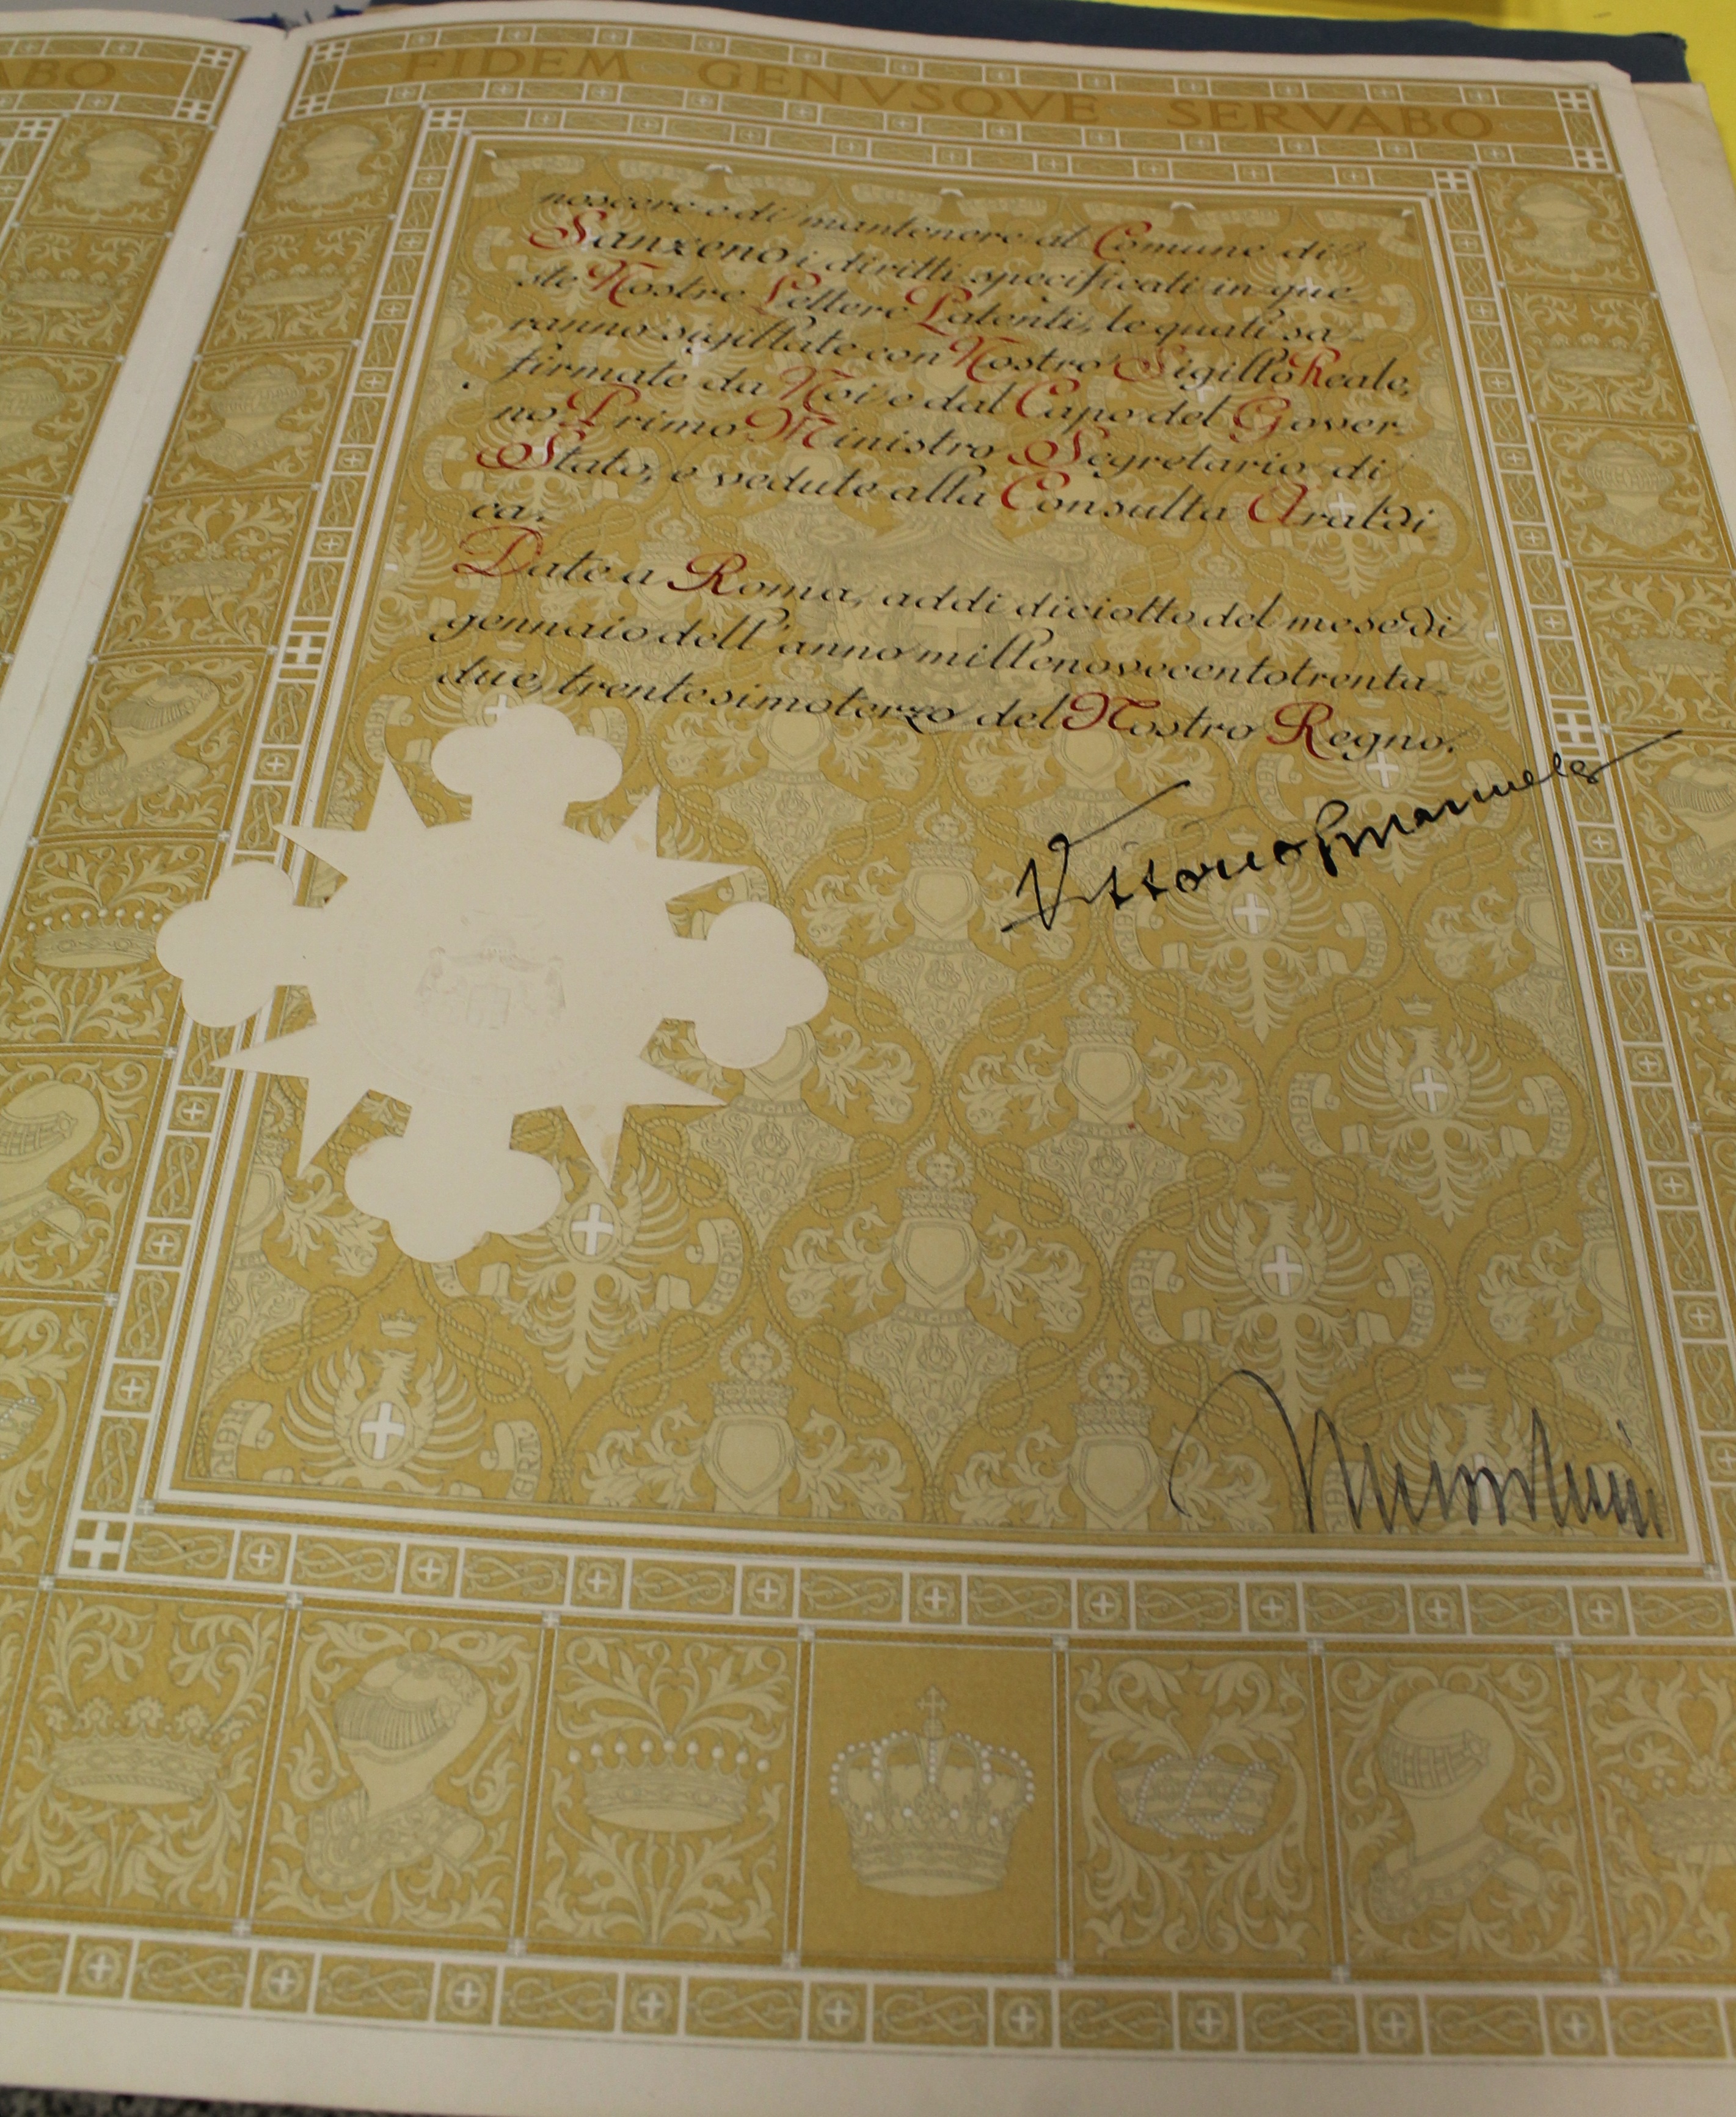 ABO
FIDEM GENVSQVE SERVABO
noscere e di mantenere al Comune di
Sanzeno i diritti specificati in que-
ste Nostre Lettere Patenti, le quali sa-
ranno sigillate con Nostro Sigillo Reale,
firmate da Noi e dal Capo del Gover-
no Primo Ministro Segretario di
Stato, e vedute alla Consulta Araldi-
ca.
Date a Roma, addì diciotto del mese di
gennaio dell'anno millenovecentotrenta-
due, trentesimoterzo del Nostro Regno.
Vittorio Emanuele
Mussolini
FERT
FERT
FERT
FERT